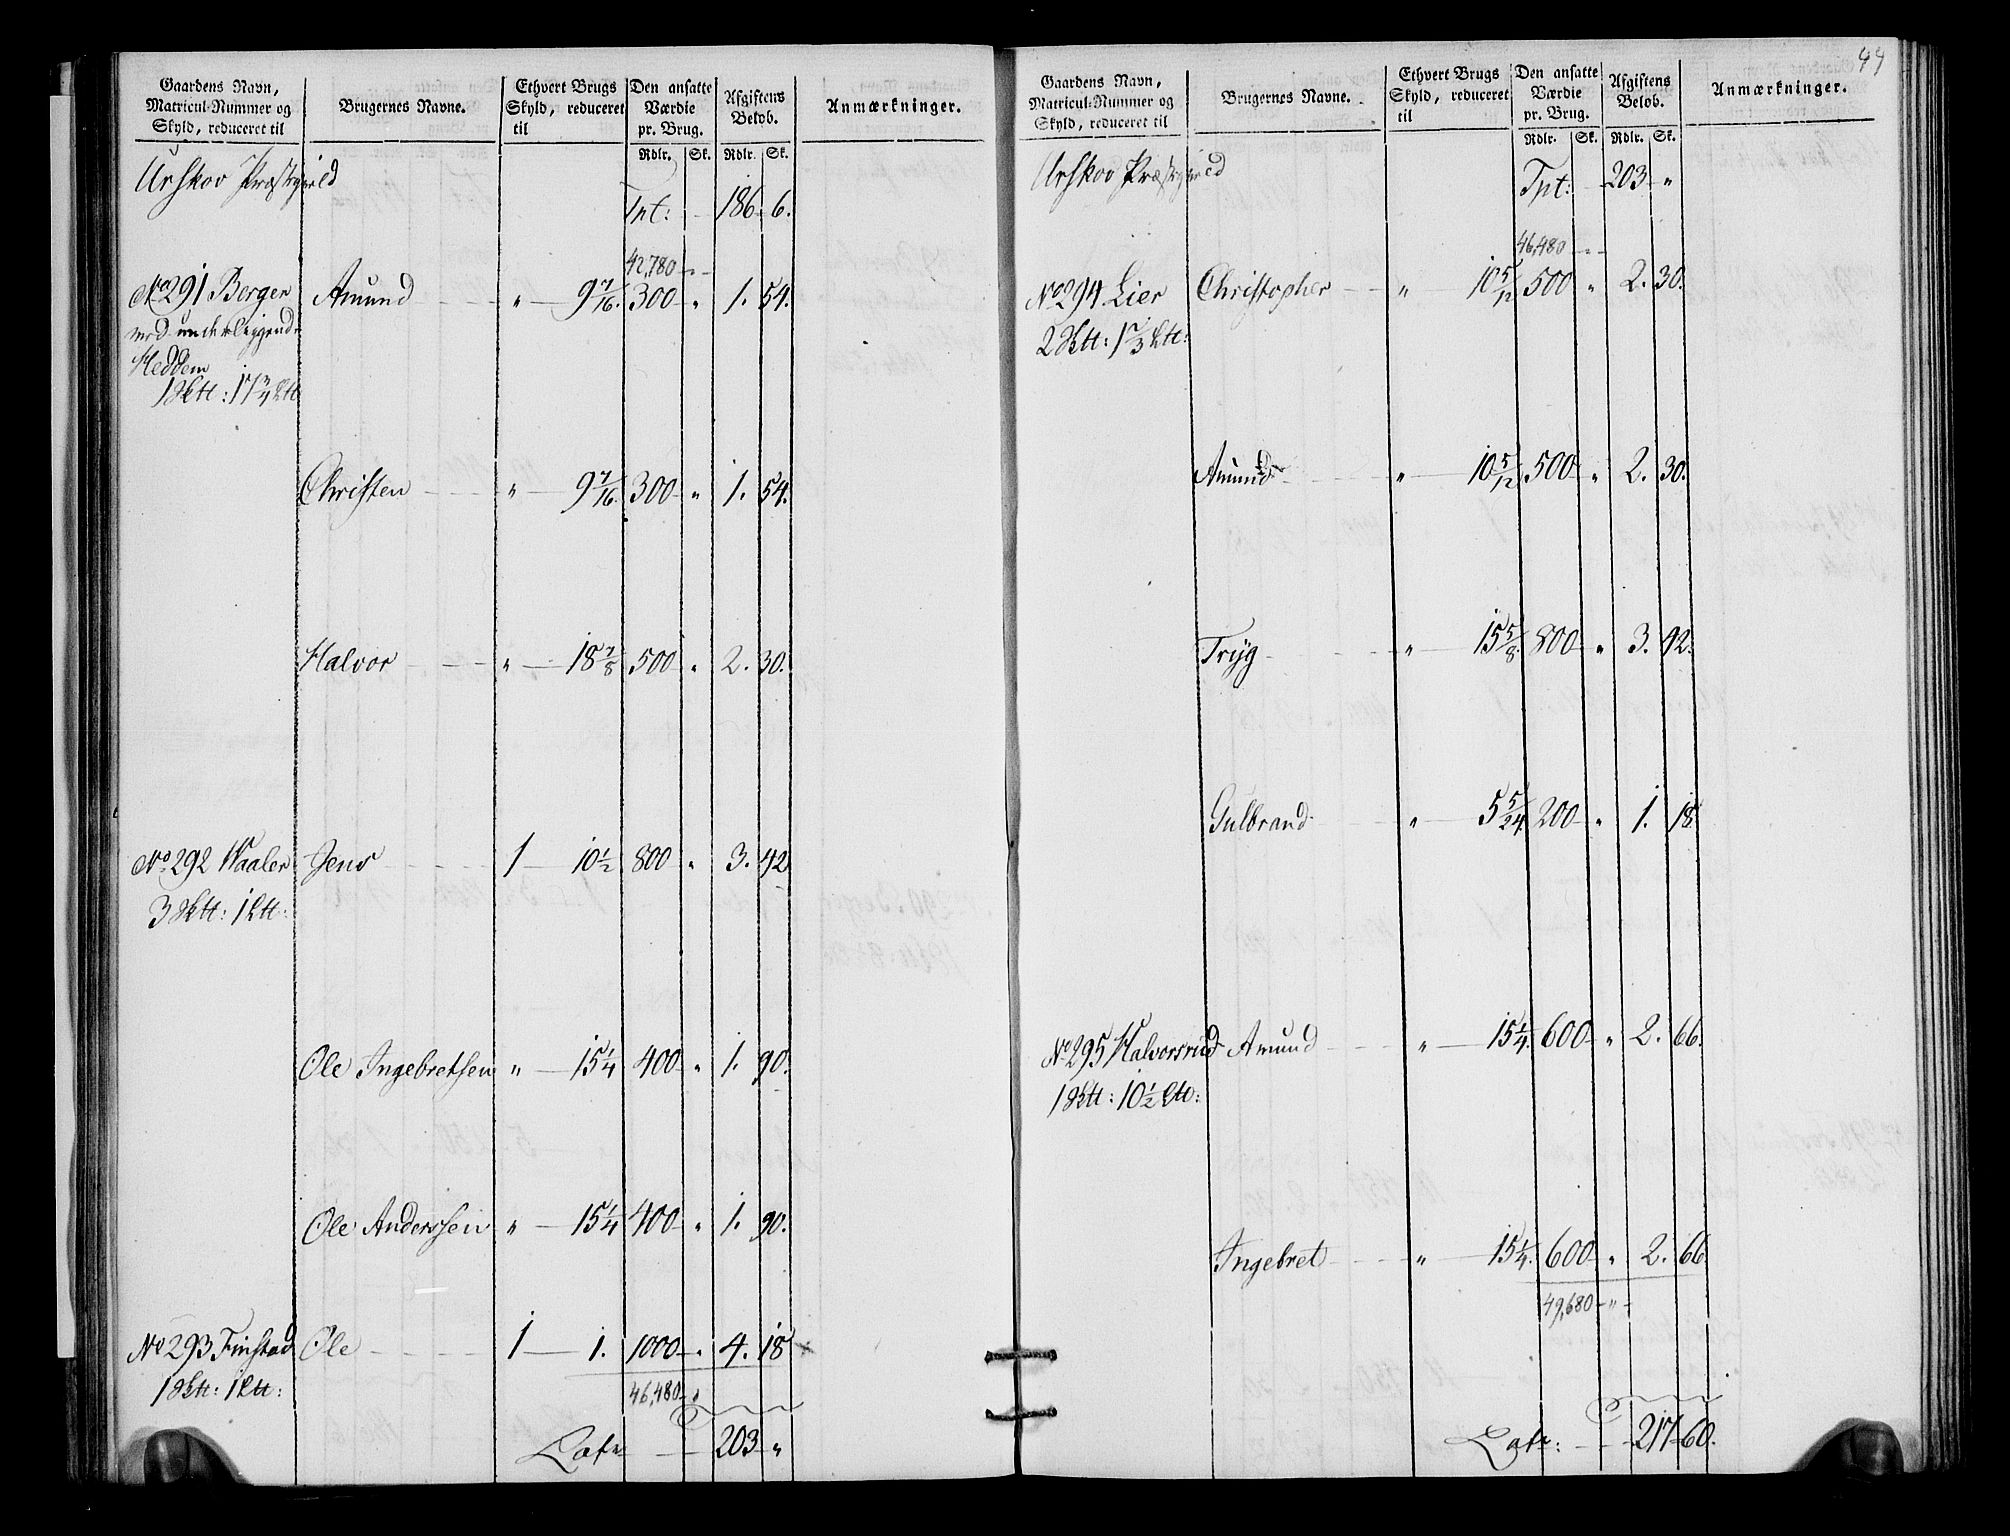 Gaardens Navn, Matricul-Nummer og Skyld, reduceret til | Brugernes Navne. | Ethvert Brugs Skyld, reduceret til | Den ansatte Værdie pr. Brug. Rdlr. Sk. | Afgiftens Beløb. Rdlr. Sk. | Anmærkninger.
Urskov Præstegield
Tpt: — 186. 6.
42,780 - " -
No 291 Berger Amund " 9 7/16. 300 " 1. 54.
med underliggende
Heddem
1 Sktt: 17 3/4 Ltt
Christen " 9 7/16. 300 " 1. 54.
Halvor " 18 7/8 500 " 2. 30.
No 292 Waaler Jens 1 10 1/2 800 " 3. 42
3 Sktt: 1 Ltt:
Ole Ingebretsen " 15 1/4 400 " 1. 90.
Ole Anderssen " 15 1/4 400 " 1. 90.
No 293 Finstad Ole 1 1. 1000 " 4. 18 ×
1 Sktt: 1 Ltt:
46,480 - "
Latr 203 "
44
Gaardens Navn, Matricul-Nummer og Skyld, reduceret til | Brugernes Navne. | Ethvert Brugs Skyld, reduceret til | Den ansatte Værdie pr. Brug. Rdlr. Sk. | Afgiftens Beløb. Rdlr. Sk. | Anmærkninger.
Urskov Præstegield
Tpt: 203 "
46,480 - " -
No 294 Lier Christopher " 10 5/12 500 " 2. 30.
2 Sktt: 17 2/3 Ltt:
Amund " 10 5/12 500 " 2. 30.
Tryg " 15 5/8. 800 " 3. 42.
Gulbrand " 5 5/24. 200 " 1. 18
No 295 Halvorsrud Amund " 15 1/4. 600 " 2. 66.
1 Sktt: 10 1/2 Ltt:
Ingebret " 15 1/4. 600 " 2. 66.
49,680 - " -
Latr: 217 60.